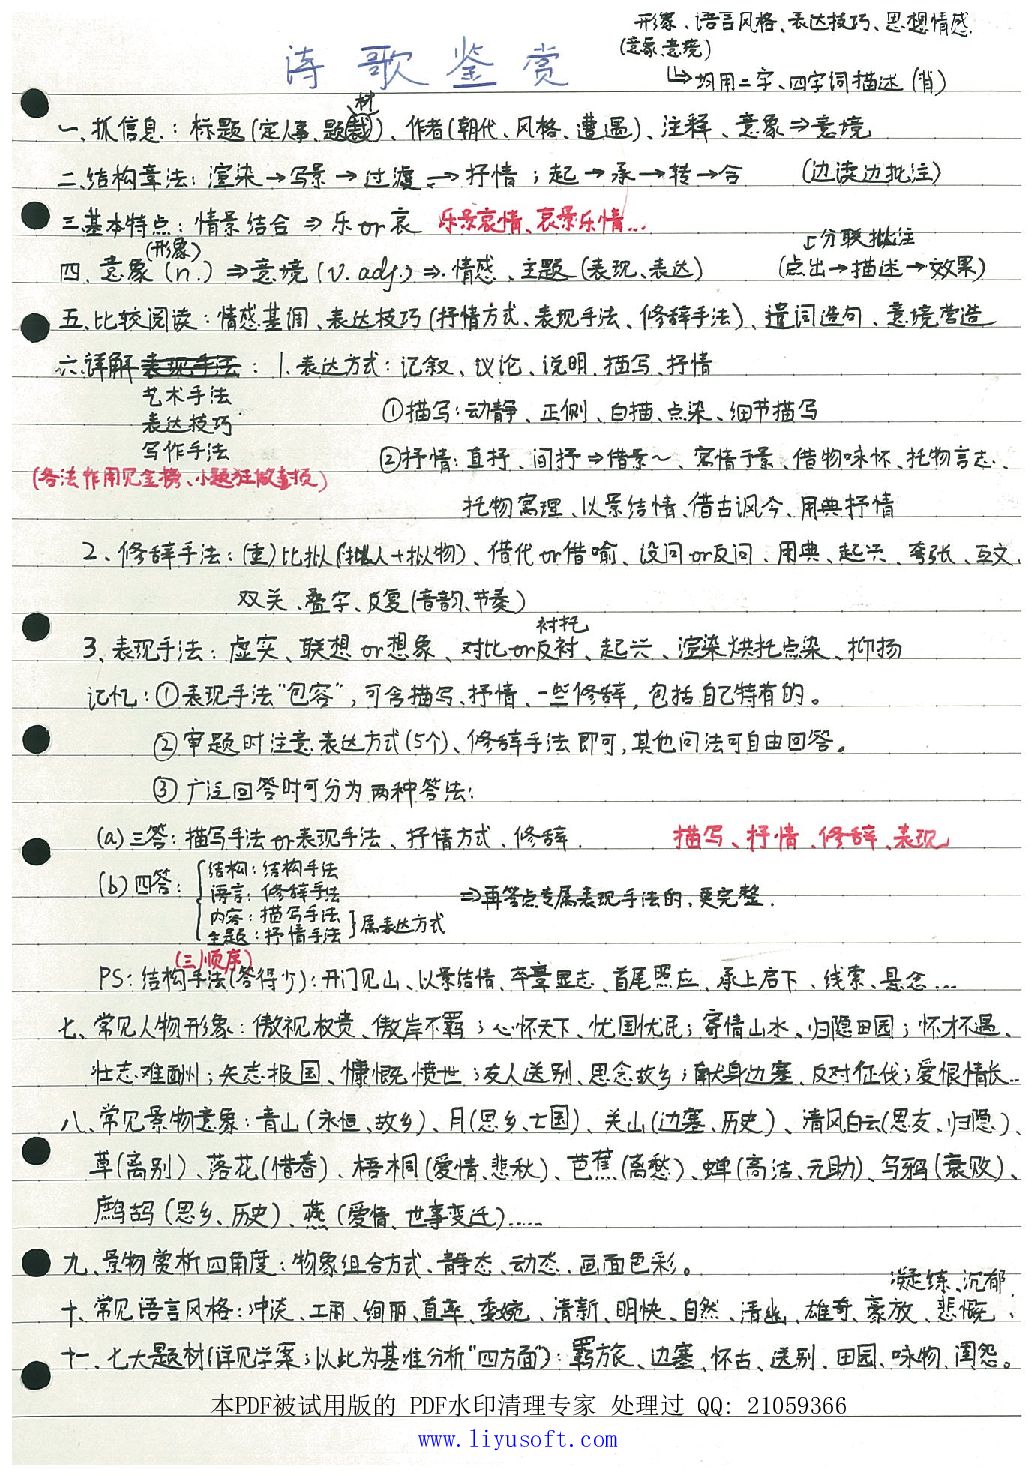 形象、语言风格、表达技巧、思想情感
(意象、意境)
↳均用二字、四字词描述(背)
诗歌鉴赏
一、抓信息：标题(定人事、题材)、作者(朝代、风格、遭遇)、注释、意象⇒意境
二、结构章法：渲染→写景→过渡→抒情；起→承→转→合 (边读边批注)
三、基本特点：情景结合⇒乐or哀 乐景哀情、哀景乐情…
(形象) 分联批注
四、意象(n.)⇒意境(v. adj.)⇒情感、主题(表现、表达) (点出→描述→效果)
五、比较阅读：情感基调、表达技巧(抒情方式、表现手法、修辞手法)、遣词造句、意境营造
六、详解表现手法：1.表达方式：记叙、议论、说明、描写、抒情
艺术手法
表达技巧 ①描写：动静、正侧、白描、点染、细节描写
写作手法 ②抒情：直抒、间抒⇒借景～、寓情于景、借物咏怀、托物言志、
(各法作用见金榜、小题狂做查报)
托物寓理、以景结情、借古讽今、用典抒情
2、修辞手法：(重)比拟(拟人+拟物)、借代or借喻、设问or反问、用典、起兴、夸张、互文、
双关、叠字、反复(音韵、节奏)
衬托
3、表现手法：虚实、联想or想象、对比or反衬、起兴、渲染烘托点染、抑扬
记忆：①表现手法“包容”,可含描写、抒情、一些修辞,包括自己特有的。
②审题时注意表达方式(5个)、修辞手法即可,其他问法可自由回答。
③广泛回答时可分为两种答法：
(a)三答：描写手法or表现手法、抒情方式、修辞. 描写、抒情、修辞、表现
(b)四答：结构：结构手法
语言：修辞手法 ⇒再答点专属表现手法的,更完整.
内容：描写手法
主题：抒情手法 属表达方式
(三)顺序)
PS：结构手法(答得少)：开门见山、以景结情、卒章显志、首尾照应、承上启下、线索、悬念…
七、常见人物形象：傲视权贵、傲岸不羁；心怀天下、忧国忧民；寄情山水、归隐田园；怀才不遇、
壮志难酬；矢志报国、慷慨愤世；友人送别、思念故乡；献身边塞、反对征伐；爱恨情长…
八、常见景物意象：青山(永恒、故乡)、月(思乡、亡国)、关山(边塞、历史)、清风白云(思友、归隐)、
草(离别)、落花(惜春)、梧桐(爱情、悲秋)、芭蕉(离愁)、蝉(高洁、无助)、乌鸦(衰败)、
鹧鸪(思乡、历史)、燕(爱情、世事变迁)……
九、景物赏析四角度：物象组合方式、静态、动态、画面色彩。
凝练、沉郁
十、常见语言风格：冲淡、工丽、绚丽、直率、委婉、清新、明快、自然、清幽、雄奇、豪放、悲慨、
十一、七大题材(详见学案；以此为基准分析“四方面”)：羁旅、边塞、怀古、送别、田园、咏物、闺怨。
本PDF被试用版的 PDF水印清理专家 处理过 QQ: 21059366
www.liyusoft.com